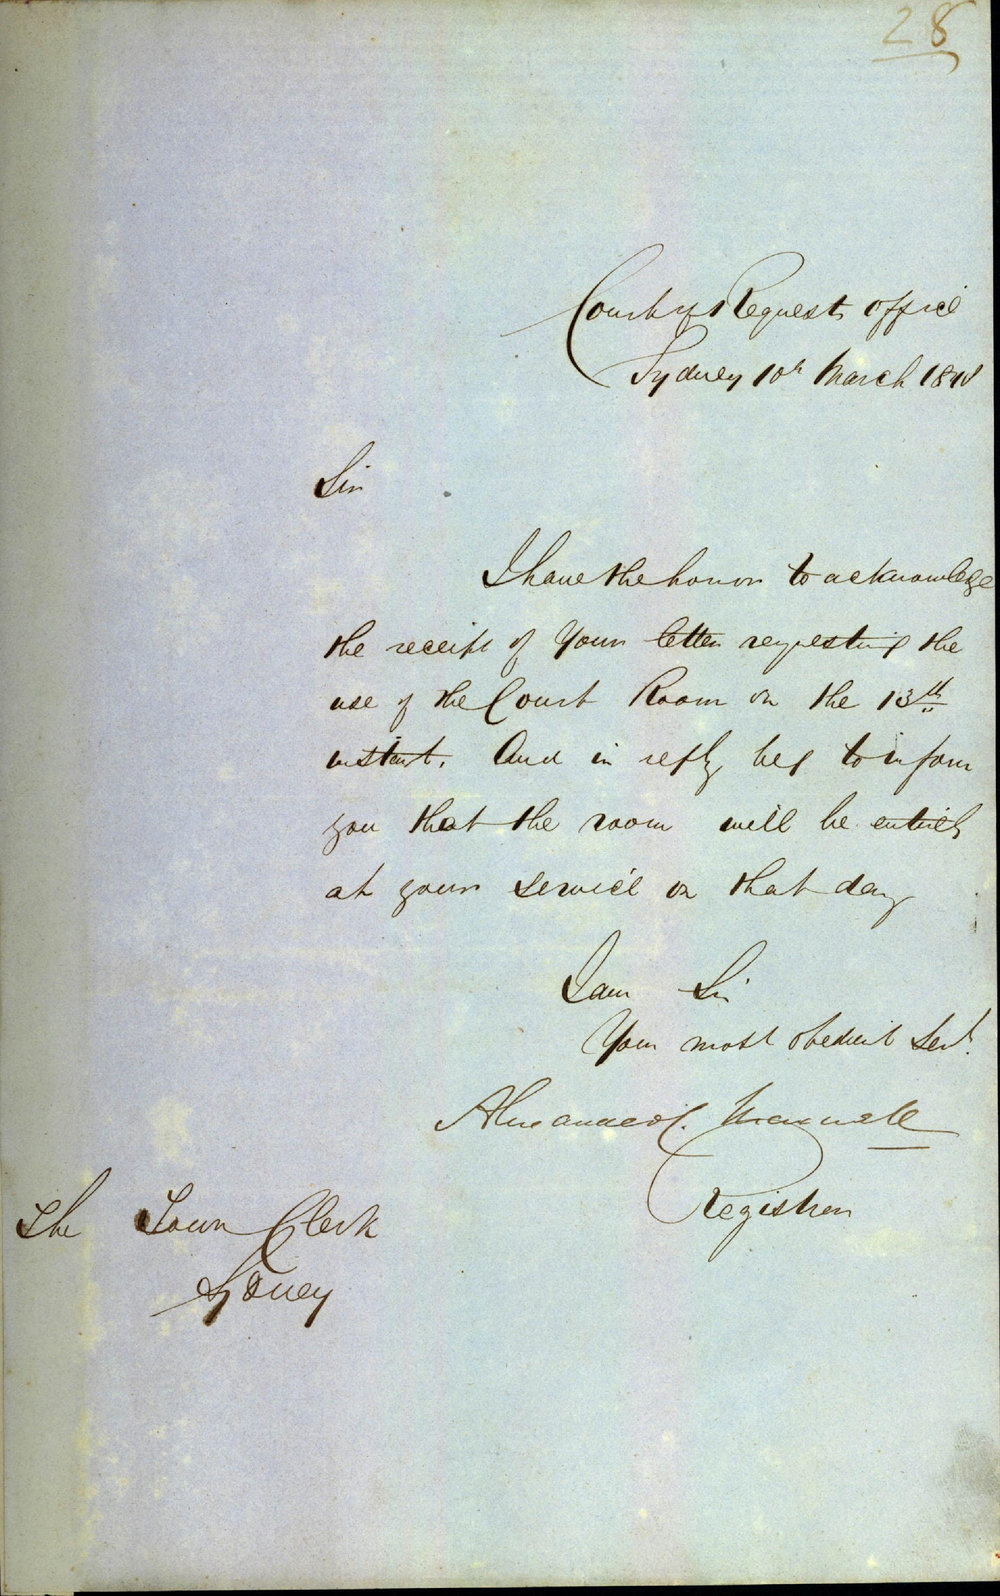 28
Court of Requests Office
Sydney 10th March 1848
Sir
I have the honor to acknowledge
the receipt of Your letter requesting the
use of the Court Room on the 13th
instant. And in reply beg to inform
you that the room will be entirely
at your service on that day
I am Sir
Your most obedient Sert.
Alexander C. Maxwell
Registrar
The Town Clerk
Sydney